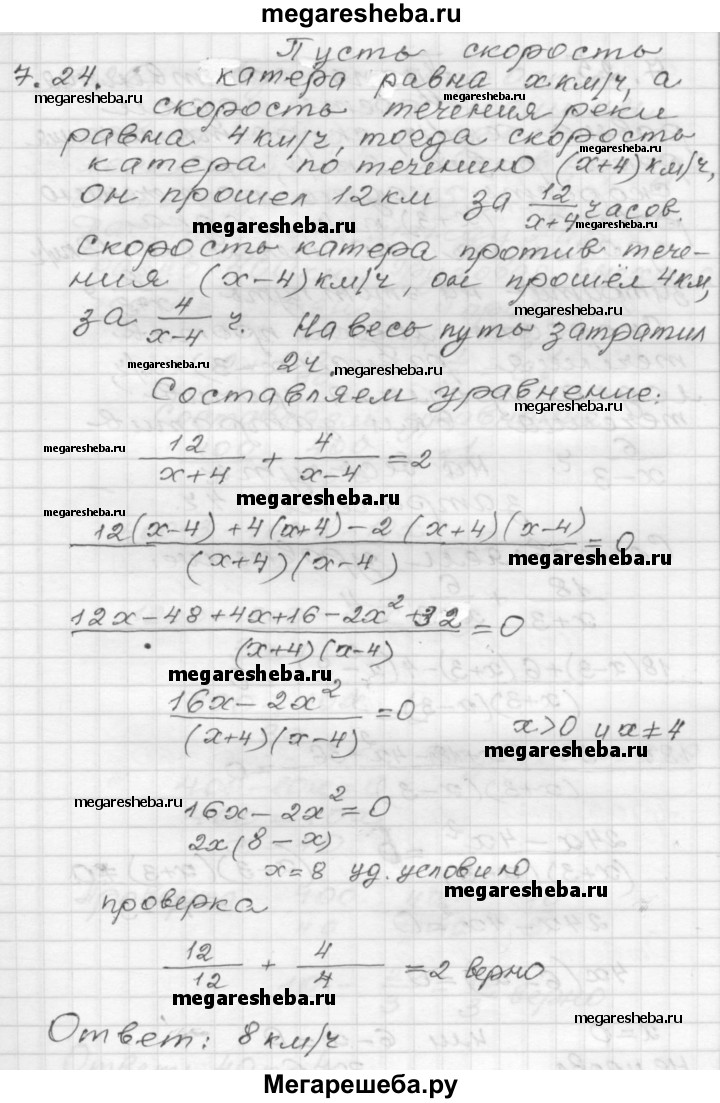 megaresheba.ru
Пусть скорость
7.24. катера равна x км/ч, а
megaresheba.ru megaresheba.ru
скорость течения реки
равна 4 км/ч, тогда скорость
megaresheba.ru
катера по течению (x+4) км/ч,
он прошел 12 км за 12/(x+4) часов.
megaresheba.ru megaresheba.ru
Скорость катера против тече-
ния (x-4) км/ч, он прошёл 4 км,
megaresheba.ru
за 4/(x-4) ч. На весь путь затратил
megaresheba.ru
2 ч. megaresheba.ru
Составляем уравнение:
megaresheba.ru
megaresheba.ru 12/(x+4) + 4/(x-4) = 2
megaresheba.ru
megaresheba.ru
(12(x-4) + 4(x+4) - 2(x+4)(x-4))/((x+4)(x-4)) = 0
megaresheba.ru
(12x - 48 + 4x + 16 - 2x² + 32)/((x+4)(x-4)) = 0
megaresheba.ru
(16x - 2x²)/((x+4)(x-4)) = 0 x>0 и x≠4
megaresheba.ru
megaresheba.ru
16x - 2x² = 0
2x(8-x)
x=8 уд. условию
megaresheba.ru
проверка
12/12 + 4/4 = 2 верно
megaresheba.ru
megaresheba.ru
Ответ: 8 км/ч
Мегарешеба.ру